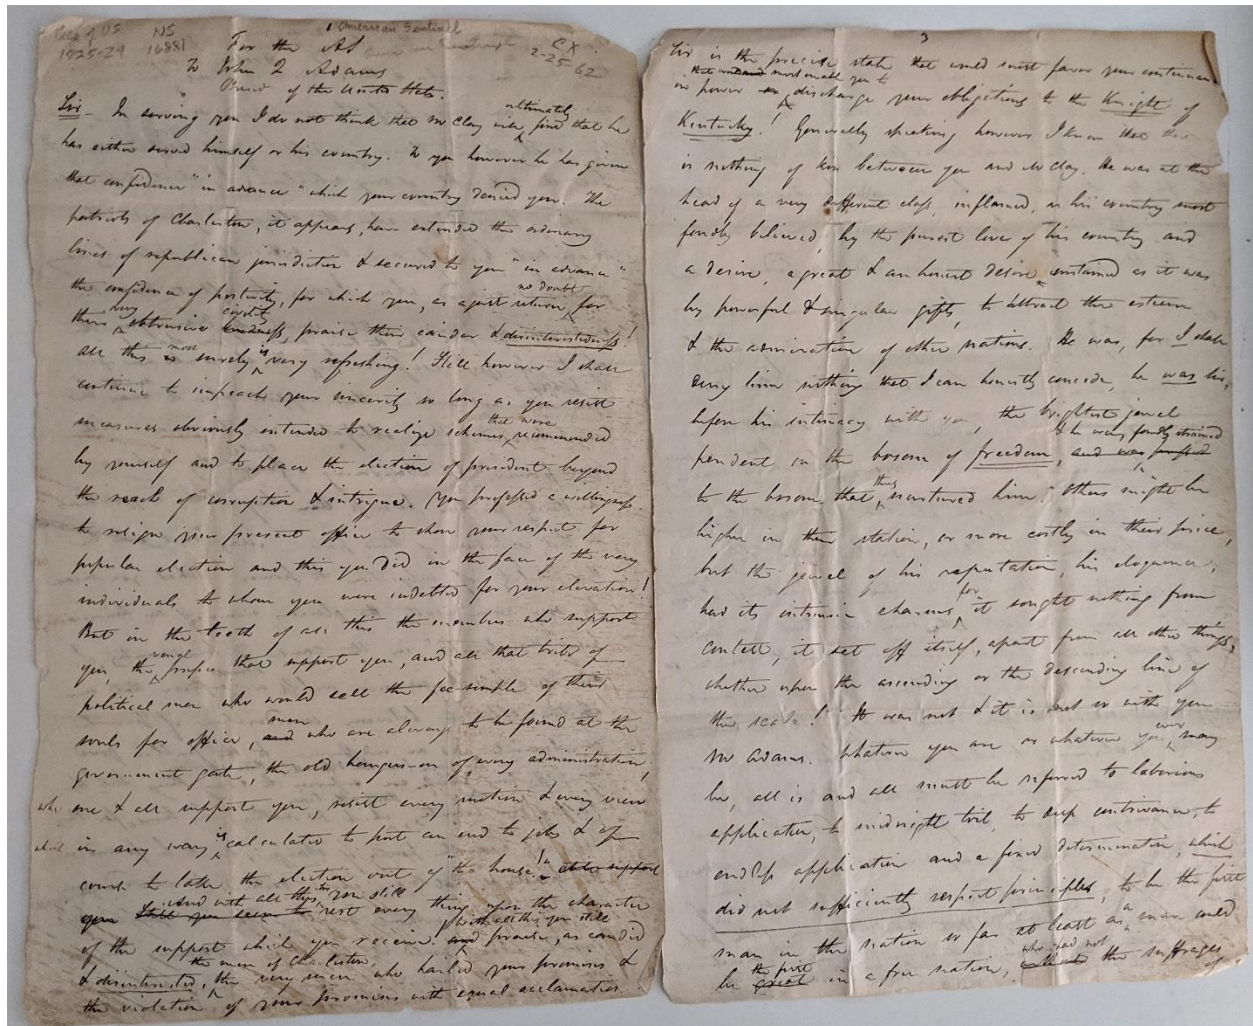 1 American Sentinel
Pres of US NS
1825-29 16881
CX
2-25-62
For the AS
To John Q Adams
Presid of the United States.
Sir - In serving you I do not think that Mr Clay will ultimately find that he
has either served himself or his country. To you however he has given
that confidence "in advance" which your country denied you. The
patriots of Charleston, it appears, have extended the ordinary
lines of republican jurisdiction & secured to you "in advance"
the confidence of posterity, for which you, as a just return, no doubt, for
their very obtrusive kindness, credit, praise their candor & disinterestedness!
all this is most surely is very refreshing! Still however I shall
continue to impeach your sincerity so long as you resist
measures obviously intended to realize schemes, that were recommended
by yourself and to place the election of president beyond
the reach of corruption & intrigue. You professed a willingness
to resign your present office to show your respect for
popular election and this you did in the face of the very
individuals to whom you were indebted for your elevation!
But in the teeth of all this the members who support
you, the venal presses that support you, and all that tribe of
political men who would sell the fee-simple of their
souls for office, and men who are always to be found at the
government gate, the old hangers-on of every administration,
who one & all support you, resist every motion & every view
which in any way is calculated to put an end to jobs & of
course to take the election out of "the house!"
And with all this, you still rest every thing upon the character
of the support which you receive! and with all this you still praise, as candid
& disinterested, the men of Charleston, the very men who hailed your promises &
the violation of your promises with equal acclamation
3
Sir is the precise state that would most favor your continuance
in power and most enable you to discharge your obligations to the Knight of
Kentucky! Generally speaking however I know that there
is nothing of kin between you and Mr Clay. He was at the
head of a very different class, inflamed, as his country most
fondly believed, by the purest love of his country and
a desire, a great & an honest desire sustained as it was
by powerful & singular gifts, to attract the esteem
& the admiration of other nations. He was, for I shall
deny him nothing that I can honestly concede, he was
before his intimacy with you, the brightest jewel
pendent on the bosom of freedom, & he was fondly strained
to the bosom that thus nurtured him! Others might be
higher in their station, or more costly in their price,
but the jewel of his reputation, his eloquence,
had its intrinsic charms, for it sought nothing from
contrast, it set off itself, apart from all other things,
whether upon the ascending or the descending line of
the scale! It was not & it is not so with you
Mr Adams. Whatever you are or whatever you ever may
be, all is and all must be referred to laborious
application, to midnight toil, to deep contrivance, to
endless application and a fixed determination, which
did not sufficiently respect principles, to be the first
man in the nation so far at least as a man could
be great the first in a free nation, who had not the suffrages
of